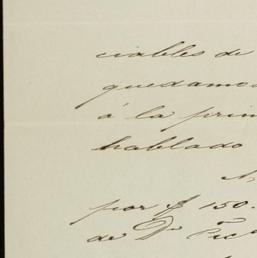 ciables de
quedamos
á la prim
hablado
por $ 150.
de Dn